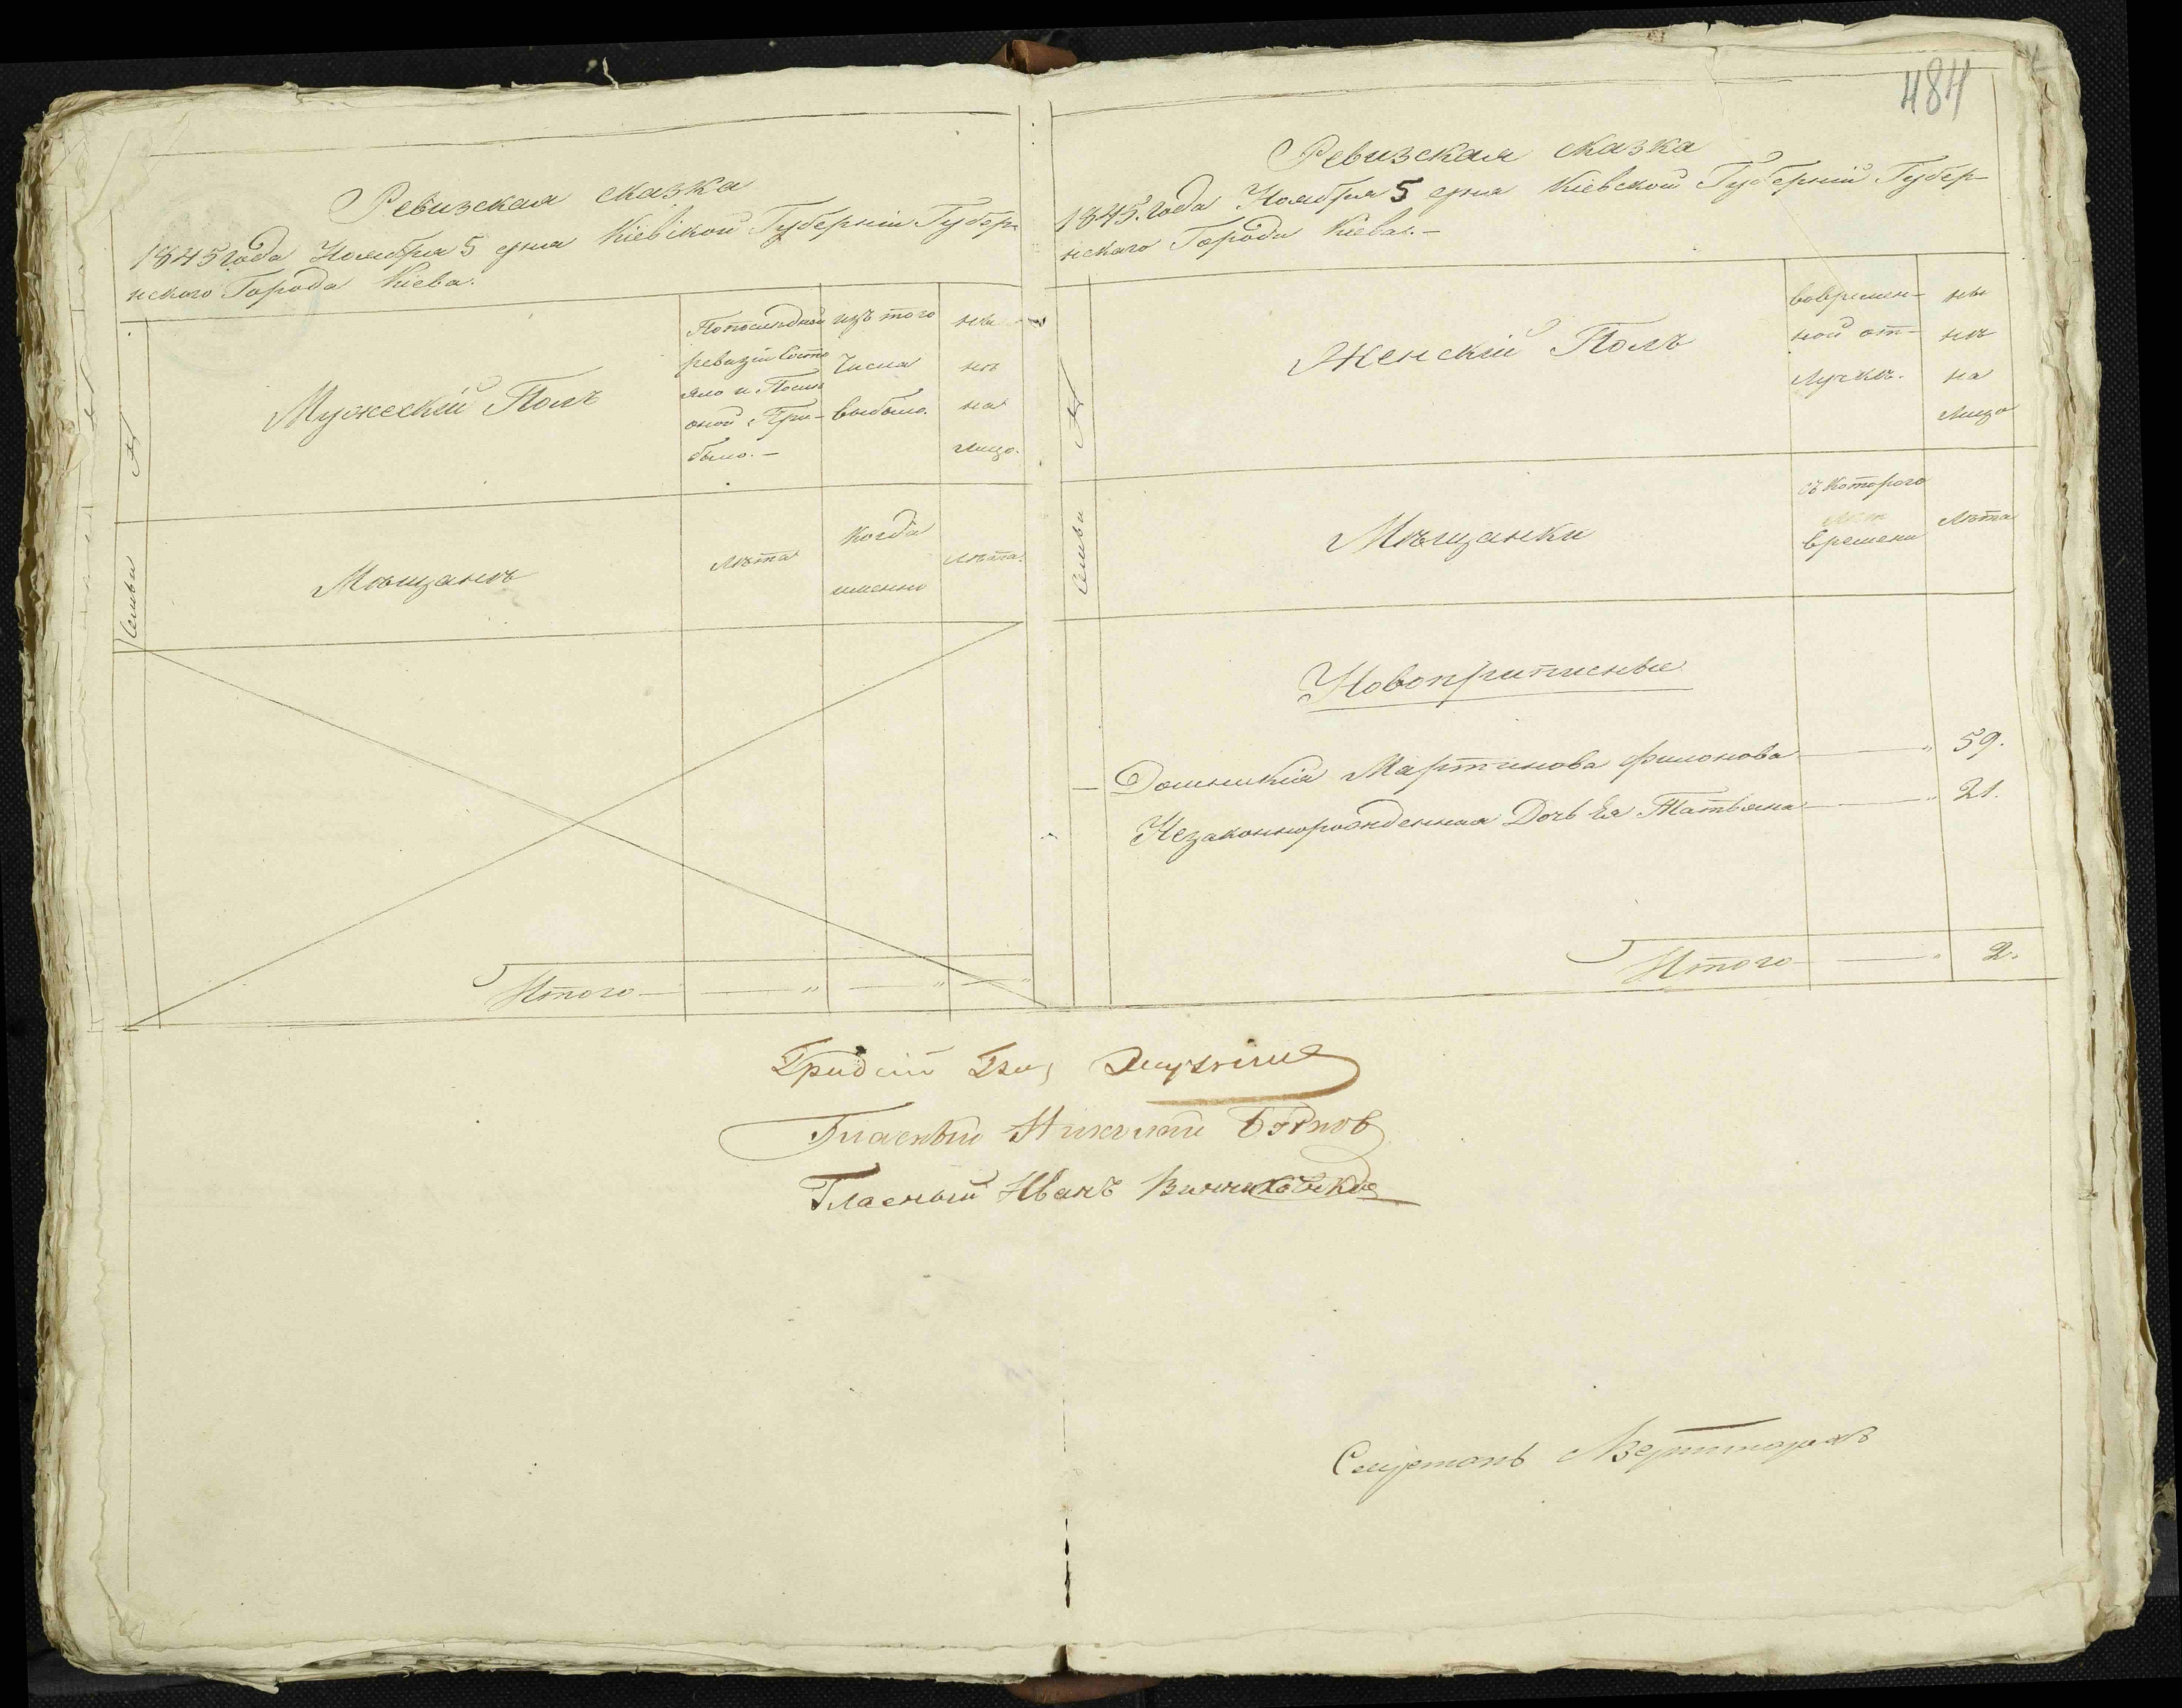 484
Ревизская сказка
1845 года Ноября 5 дня Кіевской Губерніи Губер-
нскаго Города Кіева.
Семьи №
Мужескій Полъ
Попоследней
ревизіи Состо
яло и После
оной При-
было. –
изъ того
числа
выбыло.
ны
нѣ
на
лицо.
Мѣщанѣ
Лѣта
когда
именно
лѣта.
Итого
Ревизская сказка
1845. года Ноября 5 дня Кіевской Губерніи Губер-
нскаго Города Кіева. –
Семьи №
Женскій Полъ
вовремен-
ной от-
лучкѣ.
ны
нѣ
на
лицо
Мѣщанки
съ котораго
времени
Лѣта
Новоприписные
Домникія Мартинова Филонова " 59.
Незаконнорожденная Дочь Ея Татьяна " 21.
Итого " 2.
Гласный
Гласный Иванъ